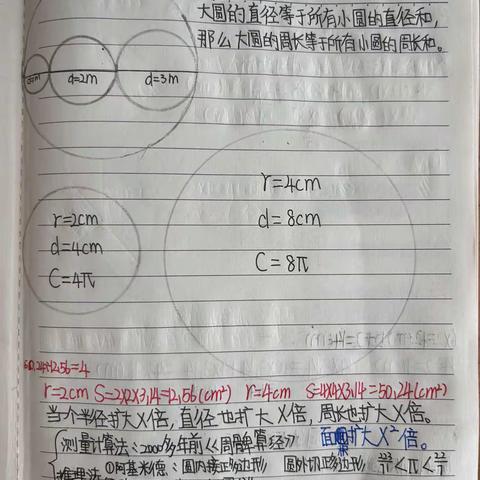 大圆的直径等于所有小圆的直径和,
那么大圆的周长等于所有小圆的周长和。
d=2m
d=3m
r=4cm
d=8cm
C=8π
r=2cm
d=4cm
C=4π
50.24÷12.56=4
r=2cm S=2×2×3.14=12.56(cm²) r=4cm S=4×4×3.14=50.24(cm²)
当个半径扩大X倍,直径也扩大X倍,周长也扩大X倍。
面积扩大X²倍。
测量计算法:2000多年前《周髀算经》
①阿基米德:圆内接正多边形 圆外切正多边形 223/71<π<22/7